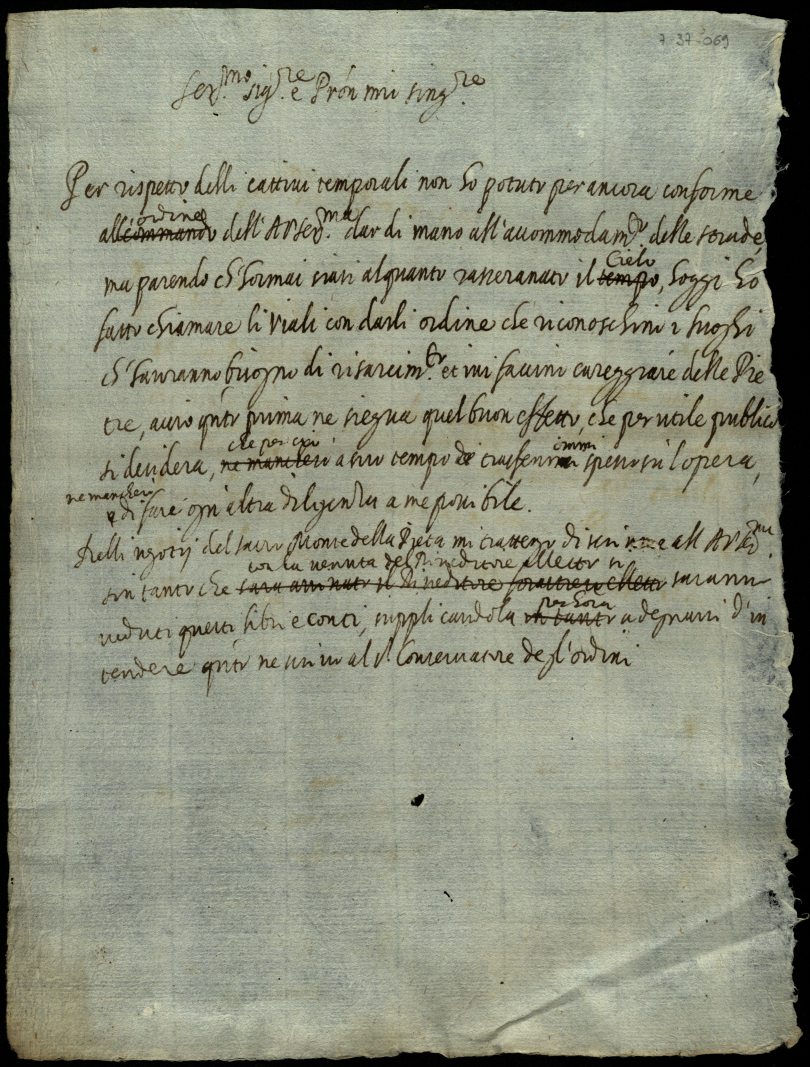 7-37-069
Ser.mo sig.re e Pron mio sing.re
Per rispetto delli cattiui temporali non ho potuto per ancora conforme
ordine
all'commando dell'A V Ser.ma dar di mano all'accommodam.to delle strade,
Cielo
ma parendo ch'hormai siasi alquanto rasseranato il tempo, hoggi ho
fatto chiamare li Viali con darli ordine che riconoschino i luoghi
ch'hauranno bisogno di risarcim.to et iui faccino careggiare delle Pie
tre, accio q.nto prima ne siegua quel buon effetto, che per utile publico
che per cio
si desidera, ne mancherò a suo tempo di trasferirmi spesso sù l'opera,
ne mancherò
e di fare ogn'altra diligenza a me possibile.
Delli negotij del sacro Monte della Pietà mi trattengo di scriuere all A V Ser.ma
con la venuta del Riueditore alletto si
sin tanto che sara arriuato il Riueditore forastiero eletto saranno
per hora
ueduti questi libri e conti, supplicandola in tanto a degnarsi d'in
tendere q.nto ne scriuo al s.r Conseruatore degl'ordini